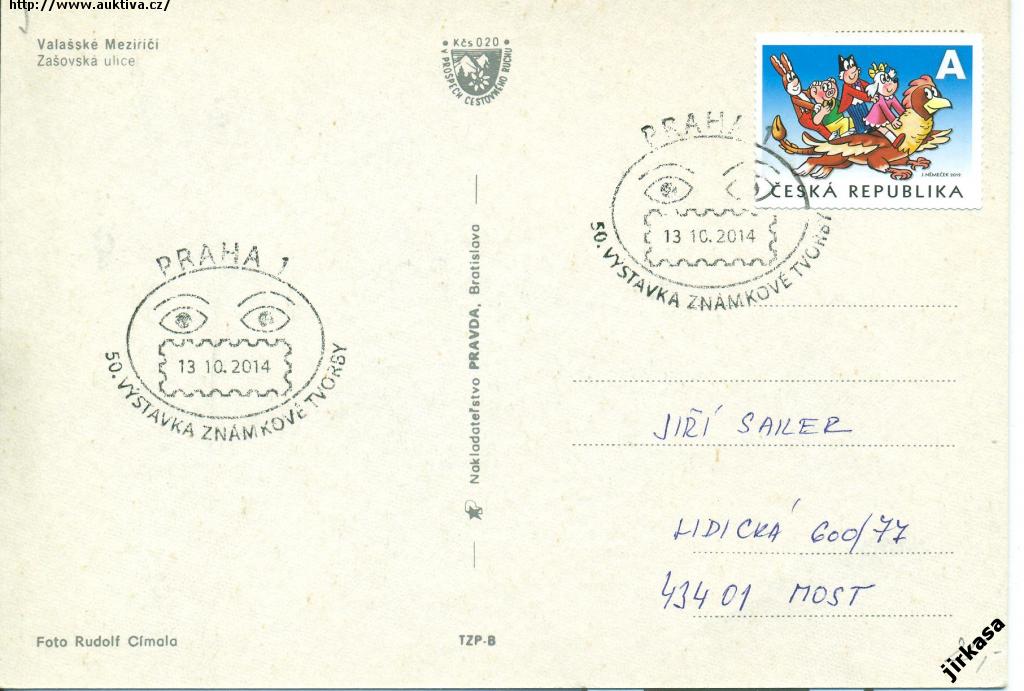 http://www.auktiva.cz/
Valašské Meziříčí
Zašovská ulice
Kčs 020
V PROSPĚCH CESTOVNÉHO RUCHU
A
J. NĚMEČEK 2012
ČESKÁ REPUBLIKA
PRAHA 1
13 10.2014
50. VÝSTAVKA ZNÁMKOVÉ TVORBY
PRAHA 1
13 10.2014
50. VÝSTAVKA ZNÁMKOVÉ TVORBY
Nakladateľstvo PRAVDA, Bratislava
JIŘÍ SAILER
LIDICKÁ 600/77
434 01 MOST
Foto Rudolf Címala
TZP-B
jirkasa